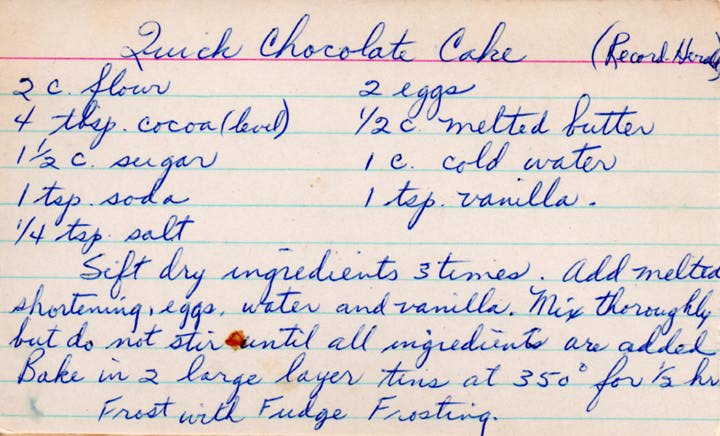 Quick Chocolate Cake (Record-Herald)
2 c. flour 2 eggs
4 tbsp. cocoa (level) 1/2 c. melted butter
1 1/2 c. sugar 1 c. cold water
1 tsp. soda 1 tsp. vanilla.
1/4 tsp. salt
Sift dry ingredients 3 times. Add melted
shortening, eggs, water and vanilla. Mix thoroughly
but do not stir until all ingredients are added
Bake in 2 large layer tins at 350° for 1/2 hr
Frost with Fudge Frosting.